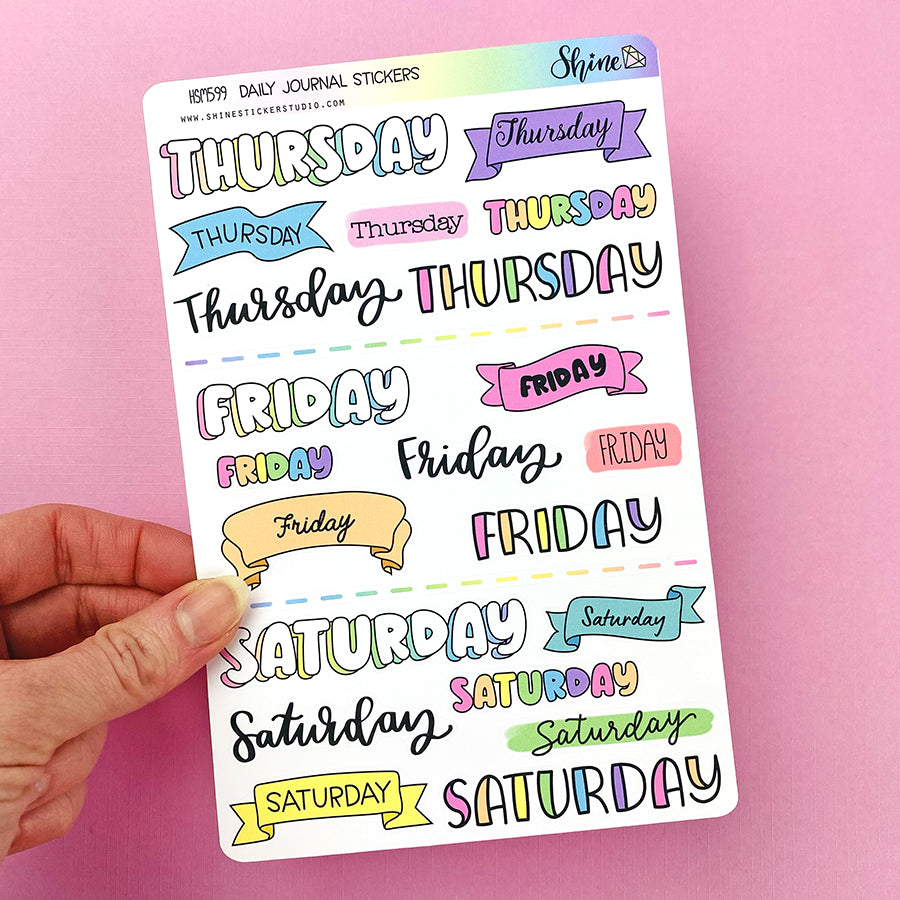 HSM599 DAILY JOURNAL STICKERS
Shine
WWW.SHINESTICKERSTUDIO.COM
THURSDAY
Thursday
THURSDAY
Thursday
THURSDAY
Thursday
THURSDAY
FRIDAY
FRIDAY
FRIDAY
Friday
FRIDAY
Friday
FRIDAY
SATURDAY
Saturday
SATURDAY
Saturday
Saturday
SATURDAY
SATURDAY